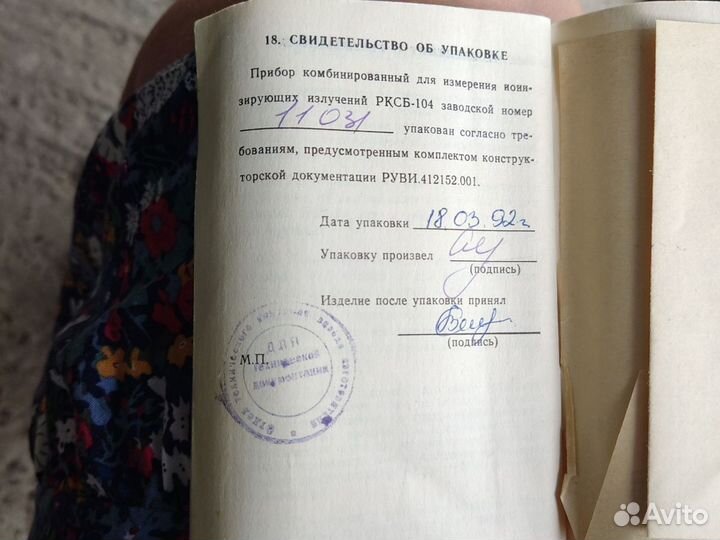 18. СВИДЕТЕЛЬСТВО ОБ УПАКОВКЕ
Прибор комбинированный для измерения иони-
зирующих излучений РКСБ-104 заводской номер
11031 упакован согласно тре-
бованиям, предусмотренным комплектом конструк-
торской документации РУВИ.412152.001.
Дата упаковки 18.03.92г
Упаковку произвел
(подпись)
Изделие после упаковки принял
(подпись)
М.П.
Отдел технического контроля завода
ДЛЯ
технической
документации
Avito